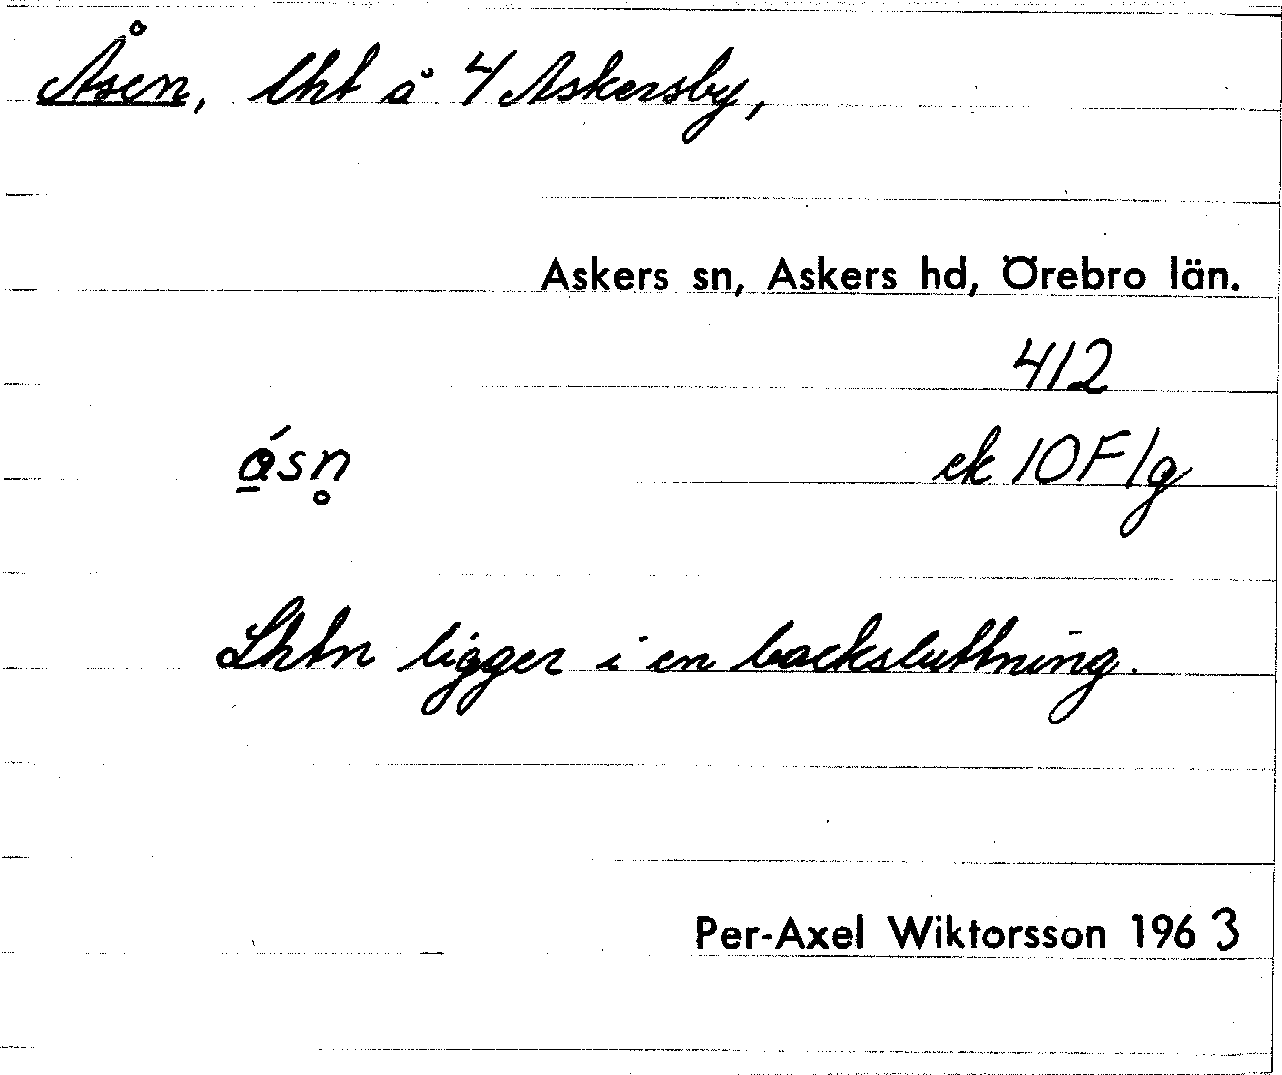 Åsen, lht å 4 Askersby,
Askers sn, Askers hd, Örebro län.
412
ek 10F1g
Lhtn ligger i en backsluttning.
Per-Axel Wiktorsson 1963